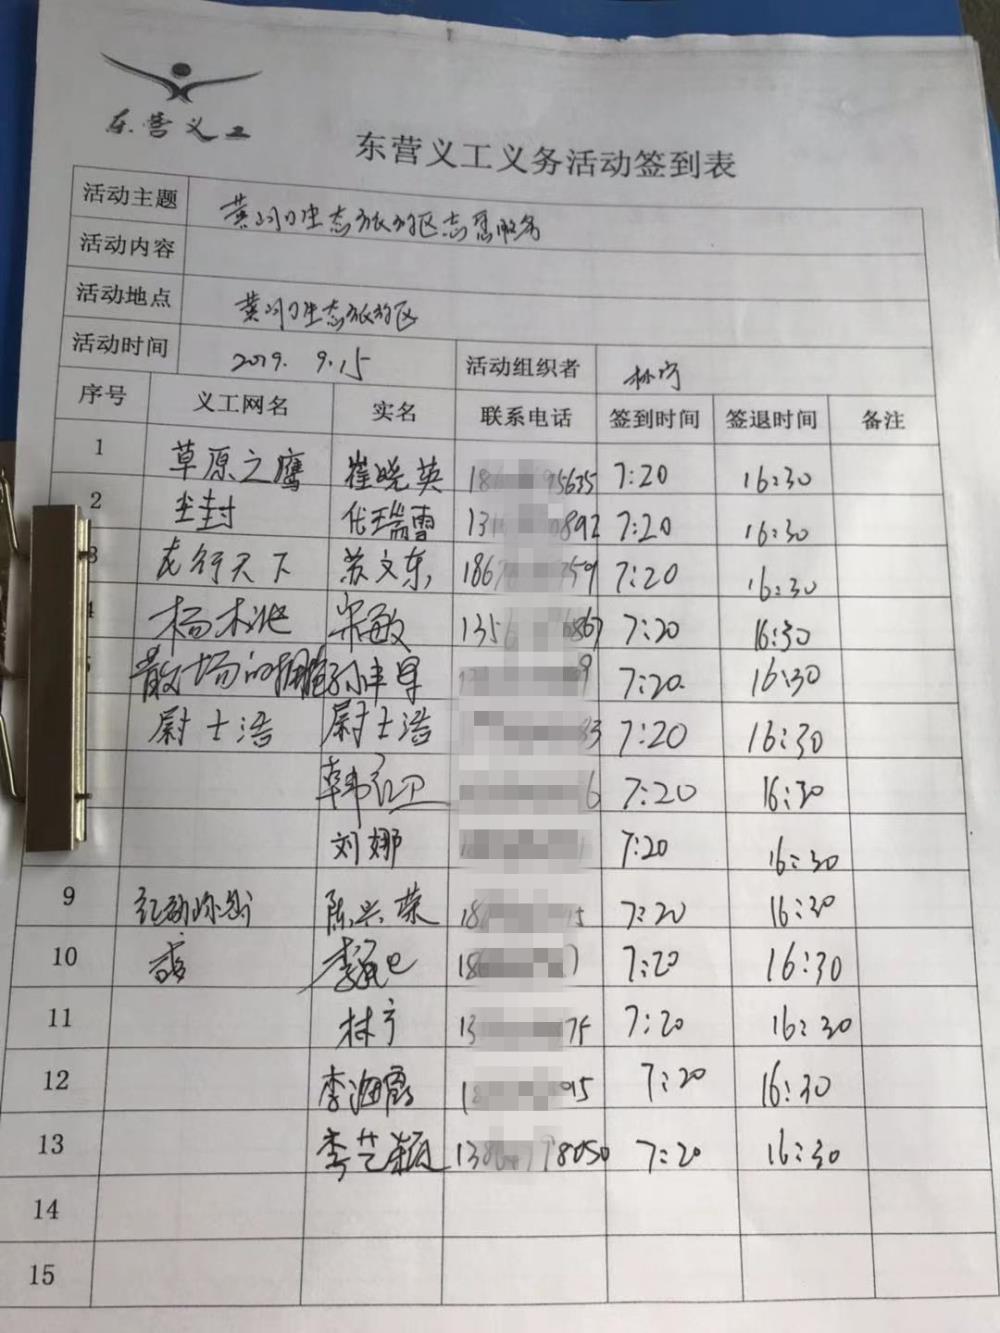 东营义工
东营义工义务活动签到表
活动主题 黄河口生态旅游区志愿服务
活动内容
活动地点 黄河口生态旅游区
活动时间 2019. 9.15 活动组织者 林宁
序号 义工网名 实名 联系电话 签到时间 签退时间 备注
1 草原之鹰 崔晓英 18 95635 7:20 16:30
2 尘封 代瑞雪 131 0892 7:20 16:30
3 行天下 苏文东 1867 759 7:20 16:30
4 杨桃 宋敏 135 867 7:20 16:30
5 散场的拥抱 9 7:20 16:30
尉士浩 尉士浩 83 7:20 16:30
韩红卫 6 7:20 16:30
刘娜 7:20 16:30
9 陈兴荣 18 15 7:20 16:30
10 李 18 7 7:20 16:30
11 林宁 13 75 7:20 16:30
12 李海霞 1 95 7:20 16:30
13 李艺颖 138 98050 7:20 16:30
14
15